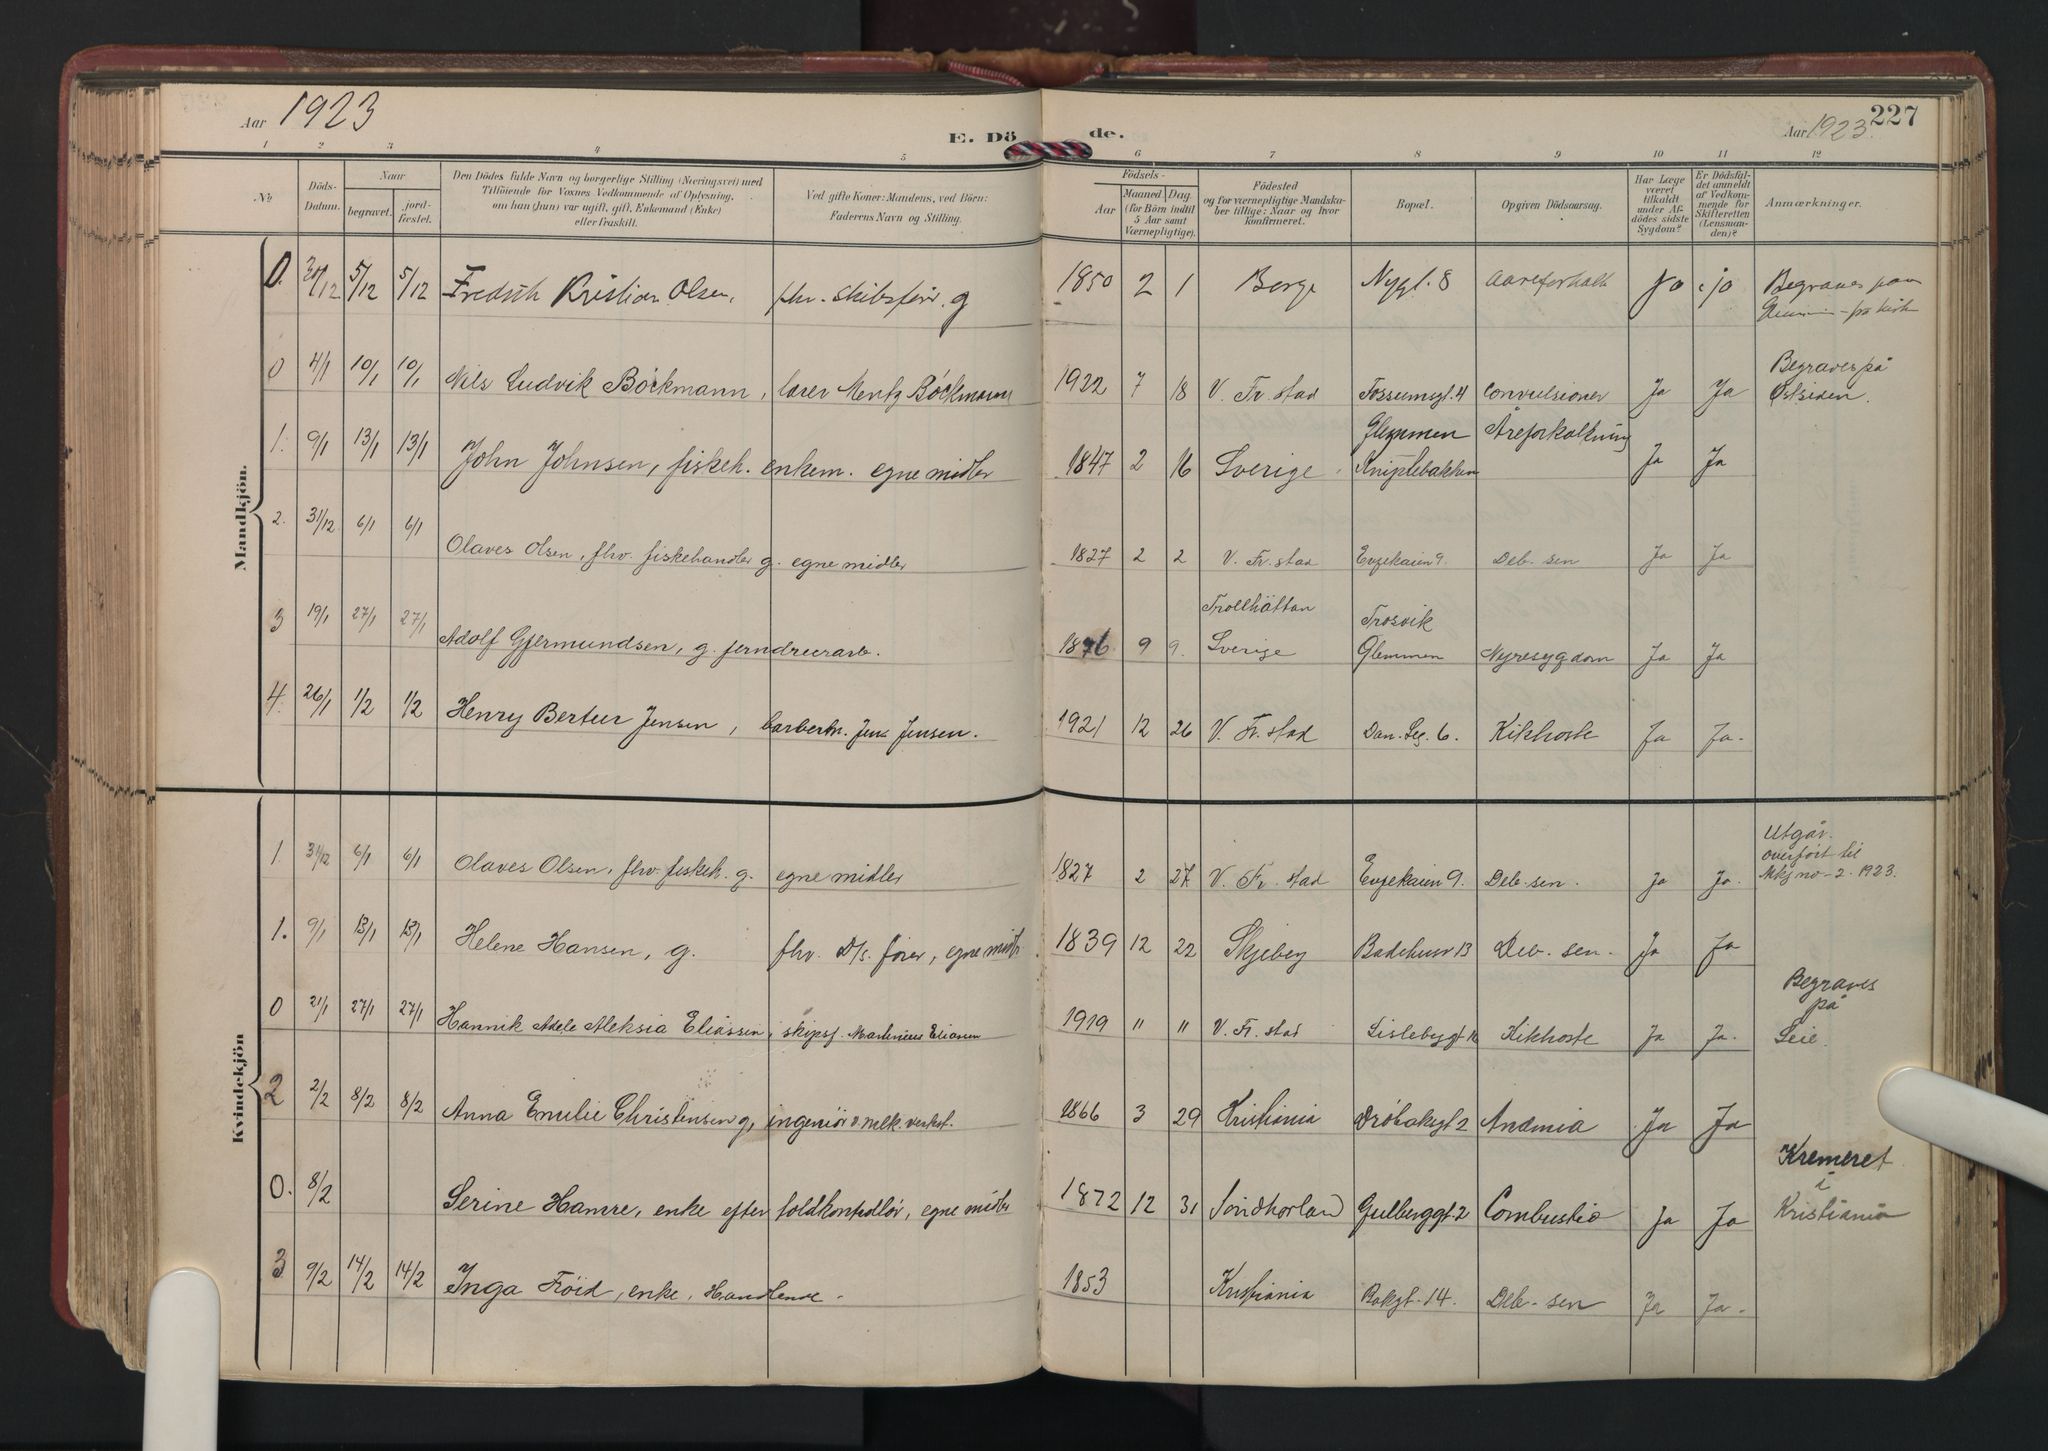 Aar 1923
E. Dö de.
Aar 1923.
227
1 2 3 4 5 6 7 8 9 10 11 12
No
Döds-Datum.
Naar
begravet.
jord-fæstet.
Den Dödes fulde Navn og borgerlige Stilling (Næringsvei) med Tilföiende for Voxnes Vedkommende af Oplysning, om han (hun) var ugift, gift, Enkemand (Enke) eller fraskilt.
Ved gifte Koner: Mandens, ved Börn: Faderens Navn og Stilling.
Födsels-
Aar
Maaned Dag
(for Börn indtil 5 Aar samt Værnepligtige).
Födested og for værnepligtige Mandska-ber tillige: Naar og hvor konfirmeret.
Bopæl.
Opgiven Dödsaarsag.
Har Læge været tilkaldt under Af-dödes sidste Sygdom?
Er Dödsfal-det anmeldt af Vedkom-mende for Skifteretten (Lensman-den)?
Anmærkninger.
Mandkjön.
0. 5/12 5/12 Kristian Olsen, fhv. skibsfør. g 1850 2 1 Borge Nygt. 8 ja ja Begraves paa
0 4/1 10/1 10/1 Nils Ludvik Böckmann, Böckmann 1922 7 18 V. Fr. stad Fossumsgt. 4 Convulsioner Ja Ja Begraves på Østsiden.
1. 9/1 13/1 13/1 John Johnsen, fiskeh. enkem. egne midler 1847 2 16 Sverige Glemmen Kniplebakken Åreforkalkning Ja Ja
2. 31/12 6/1 6/1 Olaves Olsen, fhv. fiskehandler g. egne midler 1827 2 2 V. Fr. stad Evjekaien 9. Deb. sen Ja Ja
3 19/1 27/1 27/1 Adolf Gjermundsen, g. 1876 9 9. Trollhättan Sverige Trosvik Glemmen Nyresygdom Ja Ja
4. 26/1 1/2 1/2 Henry Bertur Jensen, Jens Jensen. 1921 12 26 V. Fr. stad Kikhoste Ja Ja.
Kvindekjön
1. 31/12 6/1 6/1 Olaves Olsen, fhv. fiskeh. g. egne midler 1827 2 27 V. Fr. stad Evjekaien 9. Deb. sen. Ja Ja. Utgår. overført til Mkj no. 2. 1923.
1. 9/1 13/1 13/1 Helene Hansen, g. fhv. D/s. fører, egne midl. 1839 12 22 Skjeberg Badehusv 13 Deb. sen. Ja Ja
0 21/1 27/1 27/1 Hannik Adele Aleksia Eliassen, skipsf. Martinius Eliassen 1919 " " V. Fr. stad Kikhoste Ja Ja. Begraves på Leie.
2 2/2 8/2 8/2 Anna Emilie Christensen g, ingeniör v. mek. verkst. 1866 3 29 Kristiania Dröbakgt 2 Anæmia Ja Ja
0. 8/2 Serine Hamre, enke efter toldkontrollør, egne midler 1872 12 31 Söndhorland Gulberggt. 2 Combustio Ja Ja Kremeret i Kristiania
3 9/2 14/2 14/2 Inga Fröid, enke, Handlende. 1853 Kristiania Bakgt. 14. Deb. sen Ja Ja.